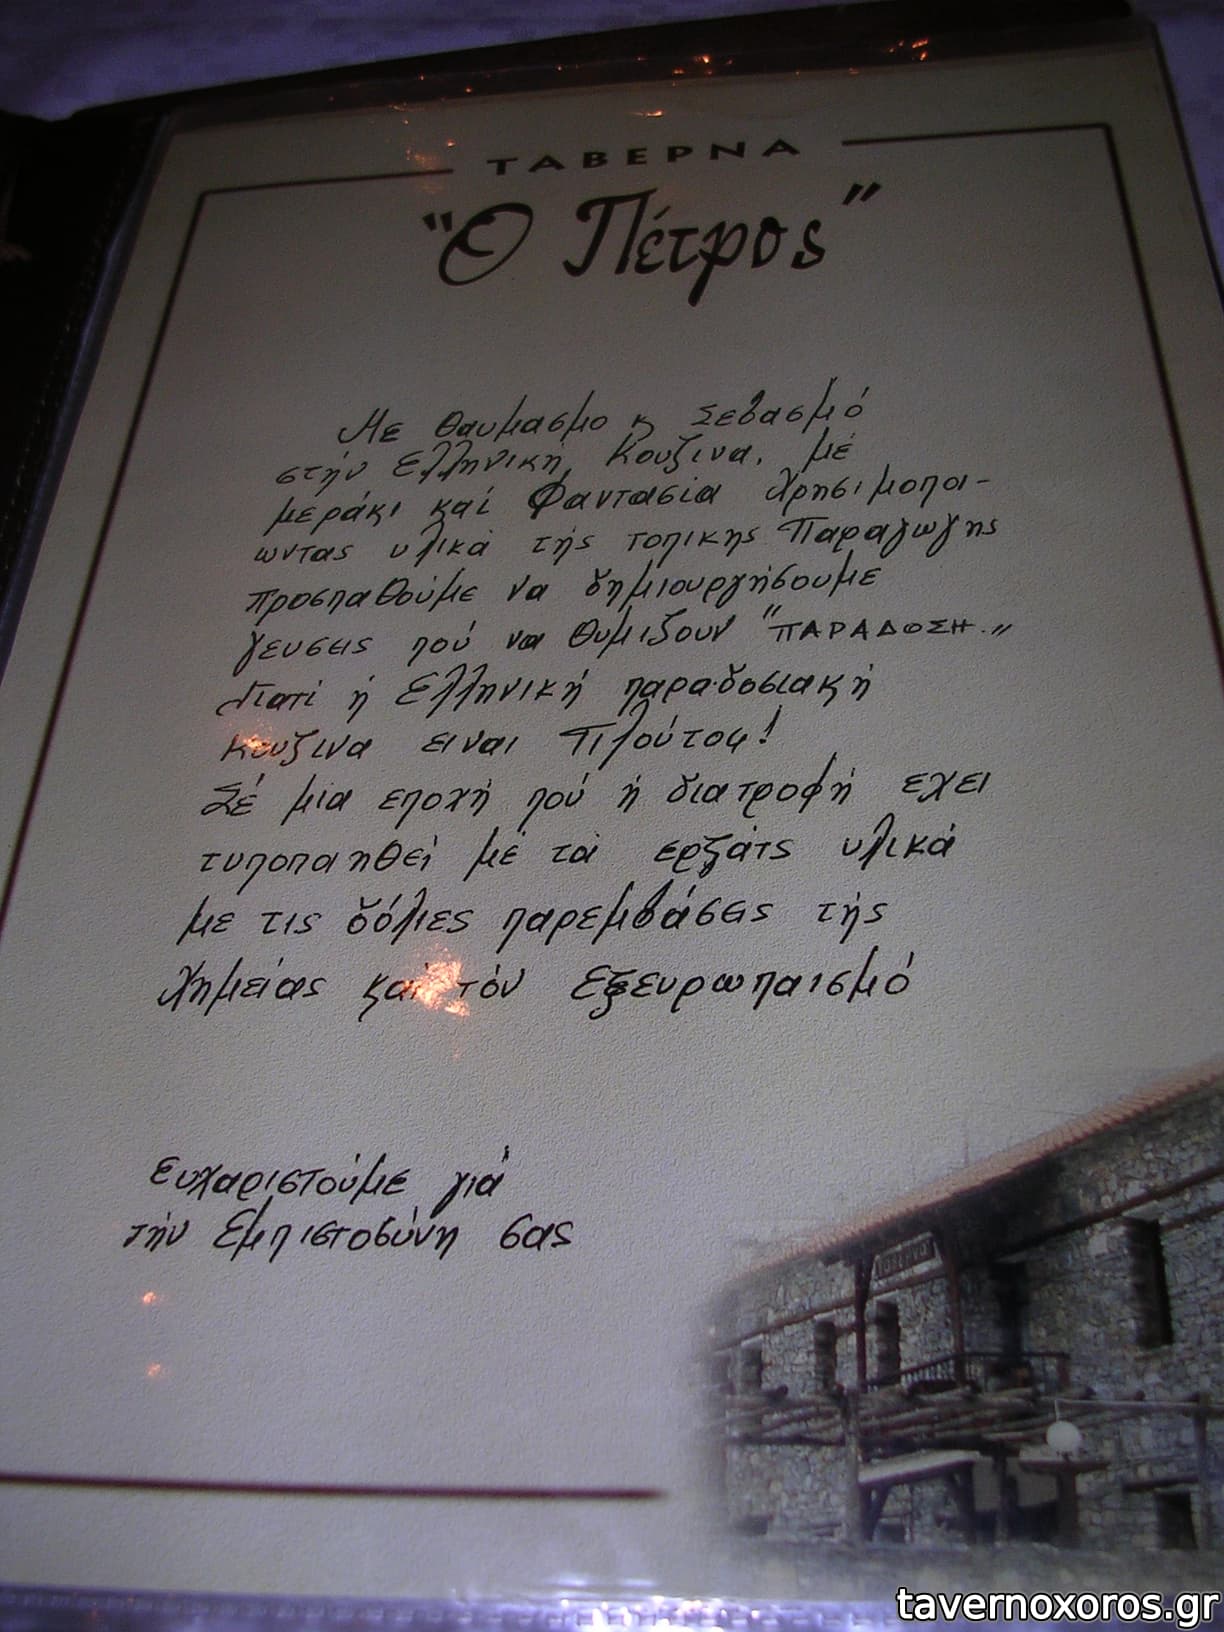 ΤΑΒΕΡΝΑ
"Ο Πέτρος"
Με θαυμασμο κ Σεβασμό
στήν Ελληνική Κουζινα, μέ
μεράκι καί Φαντασία Χρησιμοποι-
ωντας υλικά τής τοπικης Παραγωγης
προσπαθούμε να δημιουργήσουμε
γευσεις πού να θυμιζουν "ΠΑΡΑΔΟΣΗ.„
Γιατί ή Ελληνική παραδοσιακή
Κουζινα ειναι Πλούτος!
Σέ μία εποχή πού ή διατροφή εχει
τυποποιηθεί μέ τα ερζάτς υλικά
με τις δόλιες παρεμβάσεις τής
Χημείας και τόν Εξευρωπαισμό
Ευχαριστούμε γιά
τήν Εμπιστοσύνη σας
tavernoxoros.gr